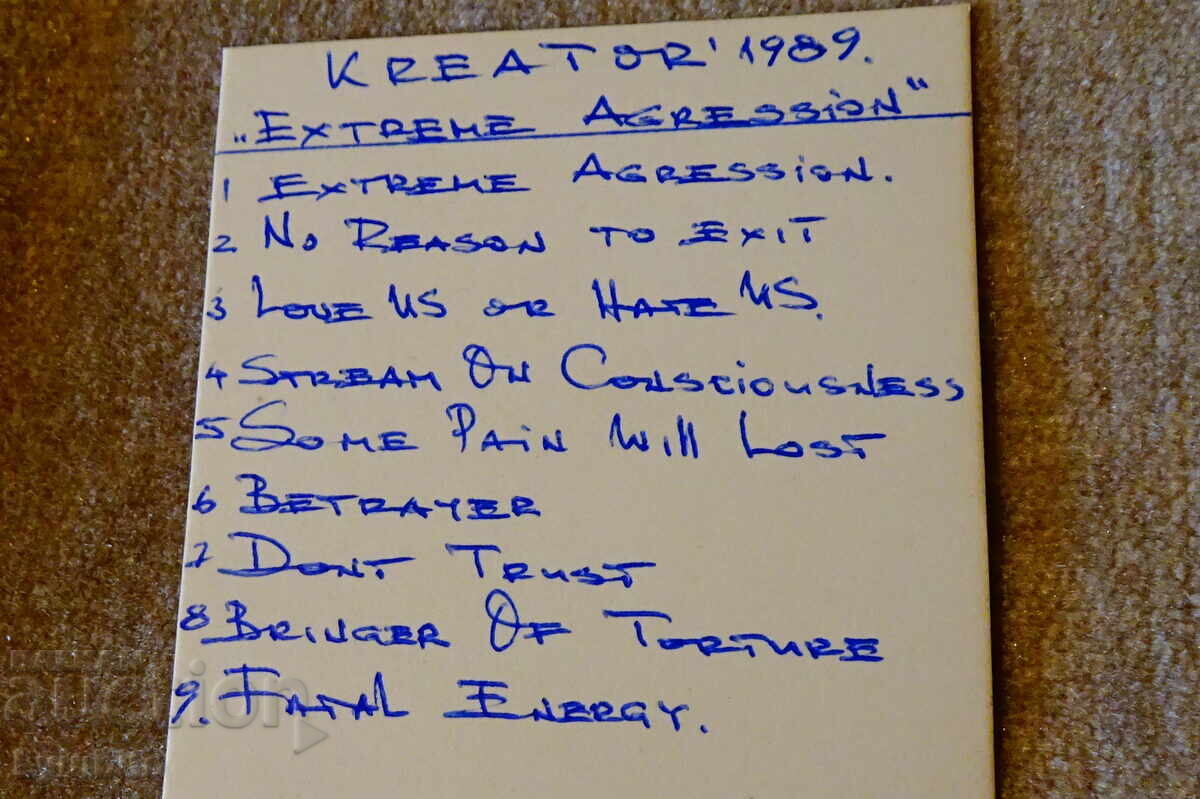 KREATOR '1989.
„EXTREME AGRESSION"
1 EXTREME AGRESSION.
2 NO REASON TO EXIT
3 LOVE US OR HATE US.
4 STREAM ON CONSCIOUSNESS
5 SOME PAIN WILL LOST
6 BETRAYER
7 DONT TRUST
8 BRINGER OF TORTURE
9. FATAL ENERGY.
auction